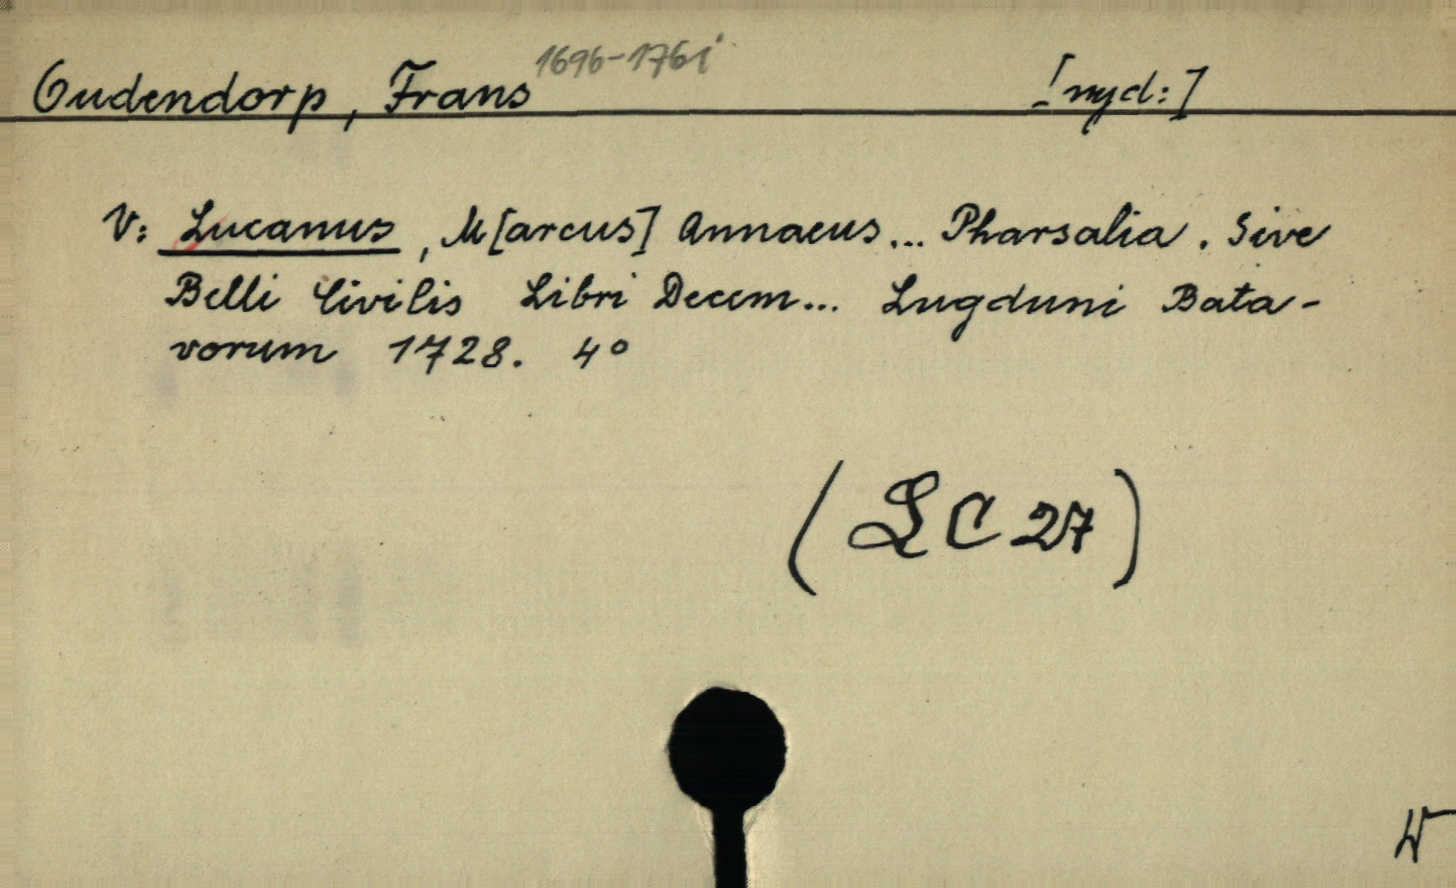 Oudendorp, Frans 1696-1761 [nyd:]
V: Lucanus, M[arcus] Annaeus... Pharsalia. Sive
Belli Civilis Libri Decem... Lugduni Bata-
vorum 1728. 4°
(LC 27)
W